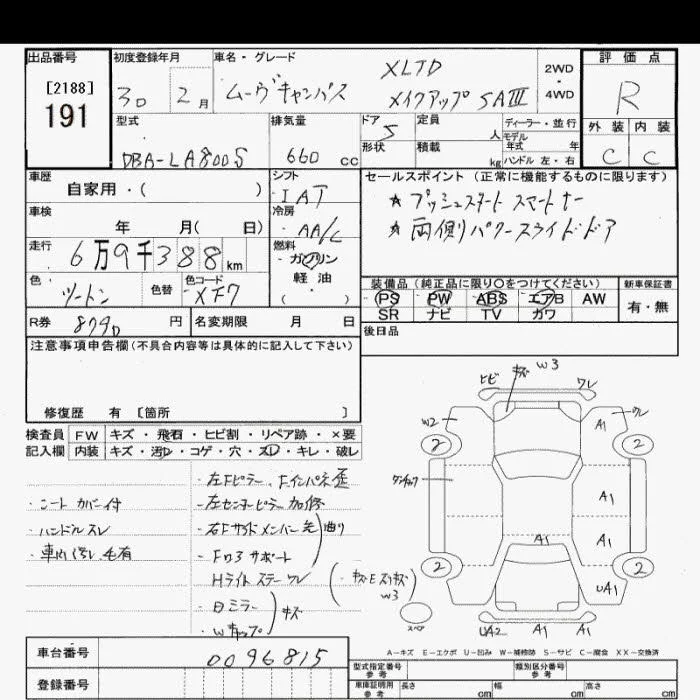 出品番号
[2188]
191
初度登録年月
30 2月
車名・グレード
ムーヴキャンバス
XLTD
メイクアップ SAIII
2WD
・
4WD
評価点
R
外装 内装
C C
型式
DBA-LA800S
排気量
660 cc
ドア
5
形状
定員 人
積載 kg
ディーラー・並行
モデル
年式 年
ハンドル 左・右
車歴
自家用・( )
シフト
IAT
車検
年 月( 日)
冷房
AA/C
走行
6万9千388km
燃料
ガソリン
軽油
( )
色
ツートン
色替
色コード
XF7
R券 8790 円
名変期限 月 日
セールスポイント(正常に機能するものに限ります)
★ プッシュスタート スマートキー
★ 両側パワースライドドア
装備品(純正品に限り〇をつけてください)
PS PW ABS エアB AW
SR ナビ TV カワ
新車保証書
有・無
後日品
注意事項申告欄(不具合内容等は具体的に記入して下さい)
修復歴 有 [箇所 ]
検査員
記入欄
FW キズ・飛石・ヒビ割・リペア跡・×要
内装 キズ・汚れ・コゲ・穴・スレ・キレ・破レ
・シートカバー付
・ハンドルスレ
・車内汚レ毛有
・左Fピラー、Fインパネ歪
・左センターピラー加修
・右Fサイドメンバー先曲り
・Fロアサポート
Hライトステーワレ
・白ミラー
・Wキャップ キズ
(・キズEスリキズ W3)
ヒビ
キズ W3
ワレ
W2
A1
ワレ
2
2
A1
A1
A1
2
2
UA1
スペア
UA2
A1
A1
A−キズ E−エクボ U−凹み W−補修跡 S−サビ C−腐食 XX−交換済
車台番号
0096815
登録番号
型式指定番号
参考
類別区分番号
参考
車庫証明用
参考
長さ cm
幅 cm
高さ cm